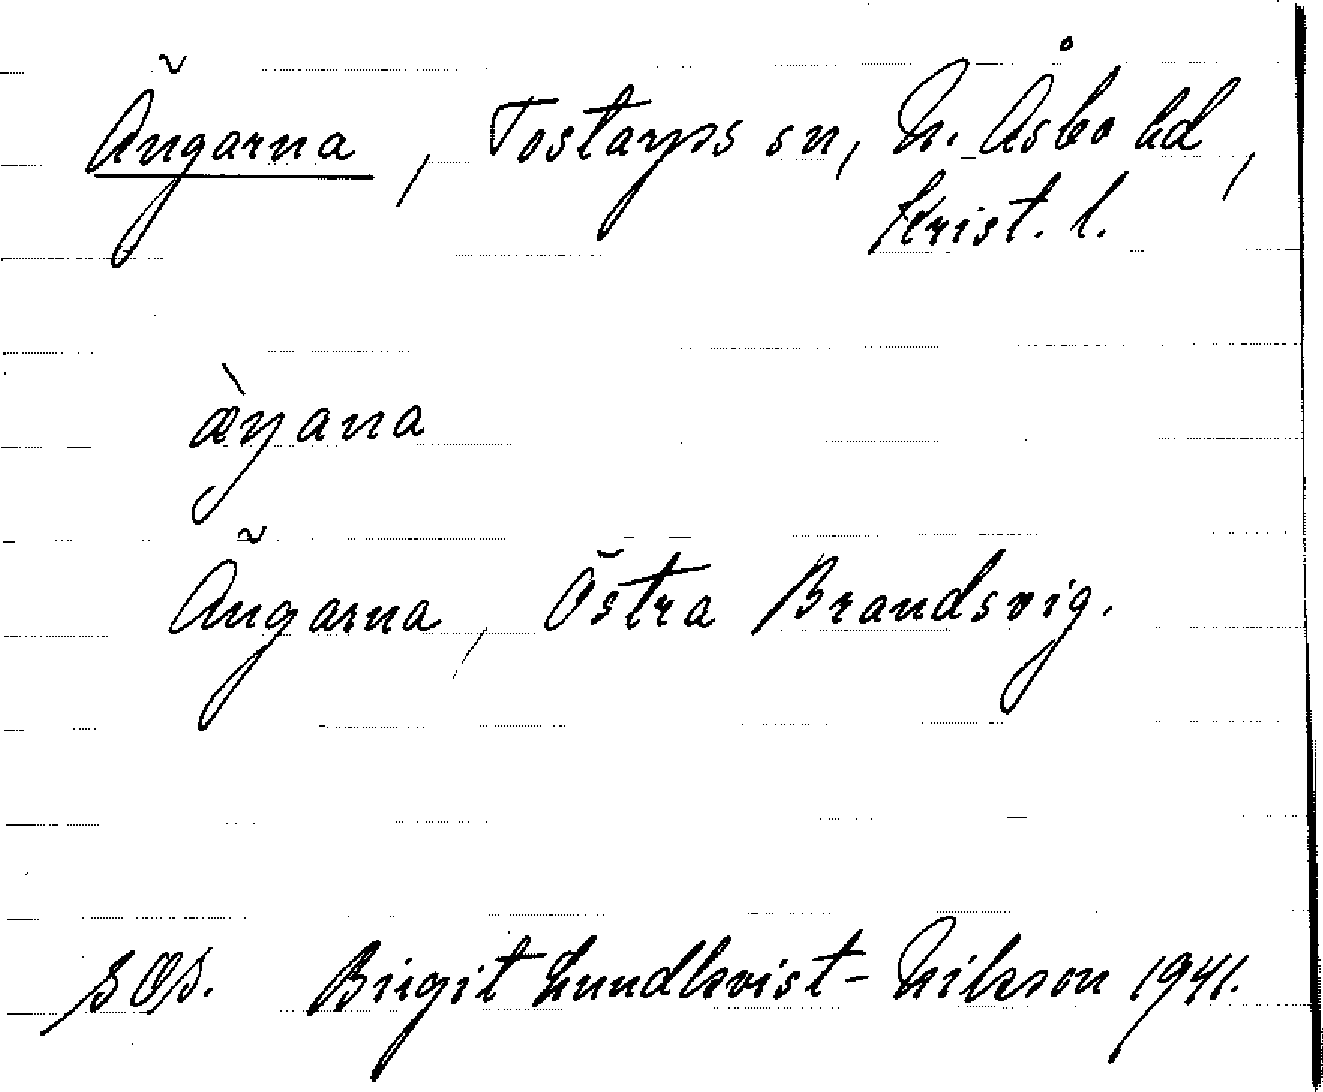 Ängarna, Tostarps sn, N. Åsbo hd,
Krist. l.
æ̀ŋana
Ängarna, Östra Brandsvig.
Birgit Lundkvist-Nilsson 1941.